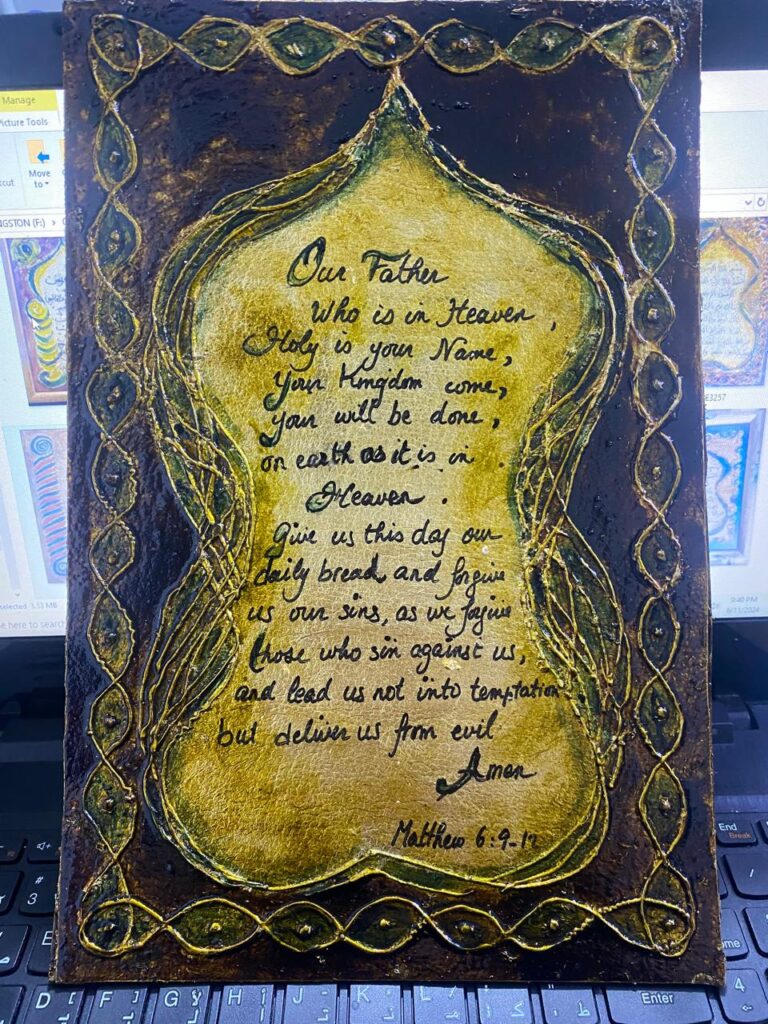 Our Father
Who is in Heaven,
Holy is your Name,
Your Kingdom come,
your will be done,
on earth as it is in
Heaven.
Give us this day our
daily bread, and forgive
us our sins, as we forgive
those who sin against us,
and lead us not into temptation
but deliver us from evil
Amen
Matthew 6:9-
Manage
Picture Tools
Move
to
(F:)
selected 3.53 MB
here to search
E3257
9:40 PM
6/11/2024
End
Break
#
3
E
D F G H J K L
Enter
4